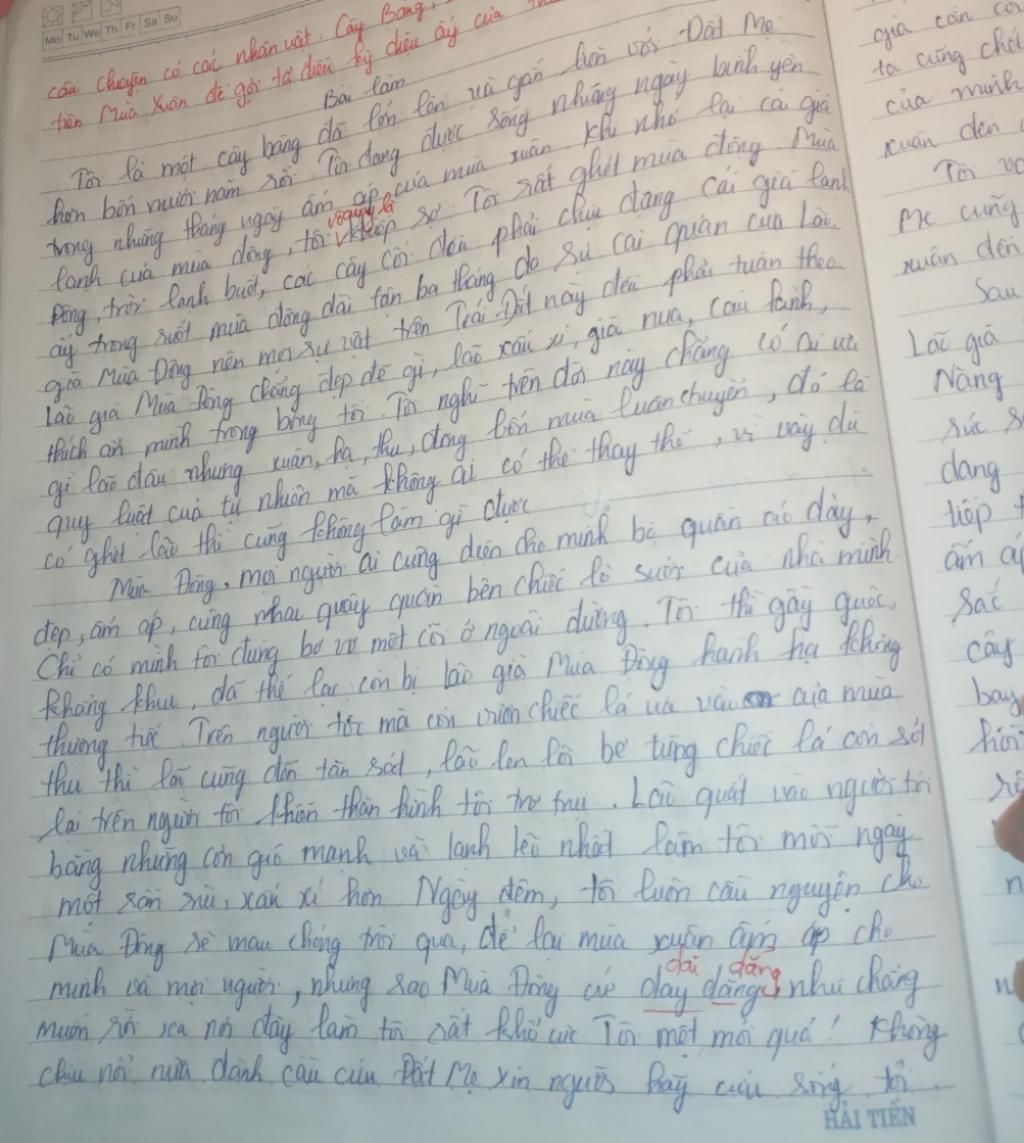 Mo Tu We Th Fr Sa Su
câu chuyện có các nhân vật: Cây Bàng,
tiên Mùa Xuân để gợi tả điều kỳ diệu ấy của
Bài làm
Tôi là một cây bàng đã lớn lên và gắn liền với Đất Mẹ
hơn bốn mươi năm rồi. Tôi đang được sống những ngày bình yên
trong những tháng ngày ấm áp của mùa xuân. Khi nhớ lại cái giá
lạnh của mùa đông, tôi sợ. Tôi rất ghét mùa đông. Mùa
Đông, trời lạnh buốt, các cây cối đều phải chịu đựng cái giá lạnh
ấy trong suốt mùa đông dài tận ba tháng do sự cai quản của Lão
già Mùa Đông nên mọi sự vật trên Trái Đất này đều phải tuân theo.
Lão già Mùa Đông chẳng đẹp đẽ gì, lão xấu xí, già nua, cau
thích ẩn mình trong bóng tối. Tôi nghĩ trên đời này chẳng có ai ưa
gì lão đâu nhưng xuân, hạ, thu, đông bốn mùa luân chuyển, đó là
quy luật của tự nhiên mà không ai có thể thay thế, vì vậy dù
có ghét lão thì cũng không làm gì được.
Mùa Đông, mọi người ai cũng diện cho mình bộ quần áo dày,
đẹp, ấm áp, cùng nhau quây quần bên chiếc lò sưởi của nhà mình.
Chỉ có mình tôi đứng bơ vơ một cõi ở ngoài đường. Tôi thì gầy guộc,
khẳng khiu, đã thế lại còn bị lão già Mùa Đông hành hạ không
thương tiếc. Trên người tôi mà còn chiếc lá úa vào của mùa
thu thì lão cũng đến tàn sát, lão len lỏi bẻ từng chiếc lá còn sót
lại trên người tôi khiến thân hình tôi trơ trụi. Lão quát vào người tôi
bằng những cơn gió mạnh và lạnh lẽo nhất làm tôi mỗi ngày
một sần sùi, xấu xí hơn. Ngày đêm, tôi luôn cầu nguyện cho
Mùa Đông sẽ mau chóng trôi qua, để lại mùa xuân ấm áp cho
dai dẳng
mình và mọi người, nhưng sao Mùa Đông cứ day dẳng, như chẳng
muốn rời xa nơi đây làm tôi rất khổ cực. Tôi mệt mỏi quá! Không
chịu nổi nữa đành cầu cứu Đất Mẹ xin người hãy cứu sống tôi.
HẢI TIẾN
già còn
ta cũng chết
của mình
xuân đến
Mẹ cũng
xuân đến
Sau
Lão già
Nàng
đang
tiếp
ấm áp
sắc
cây
bay